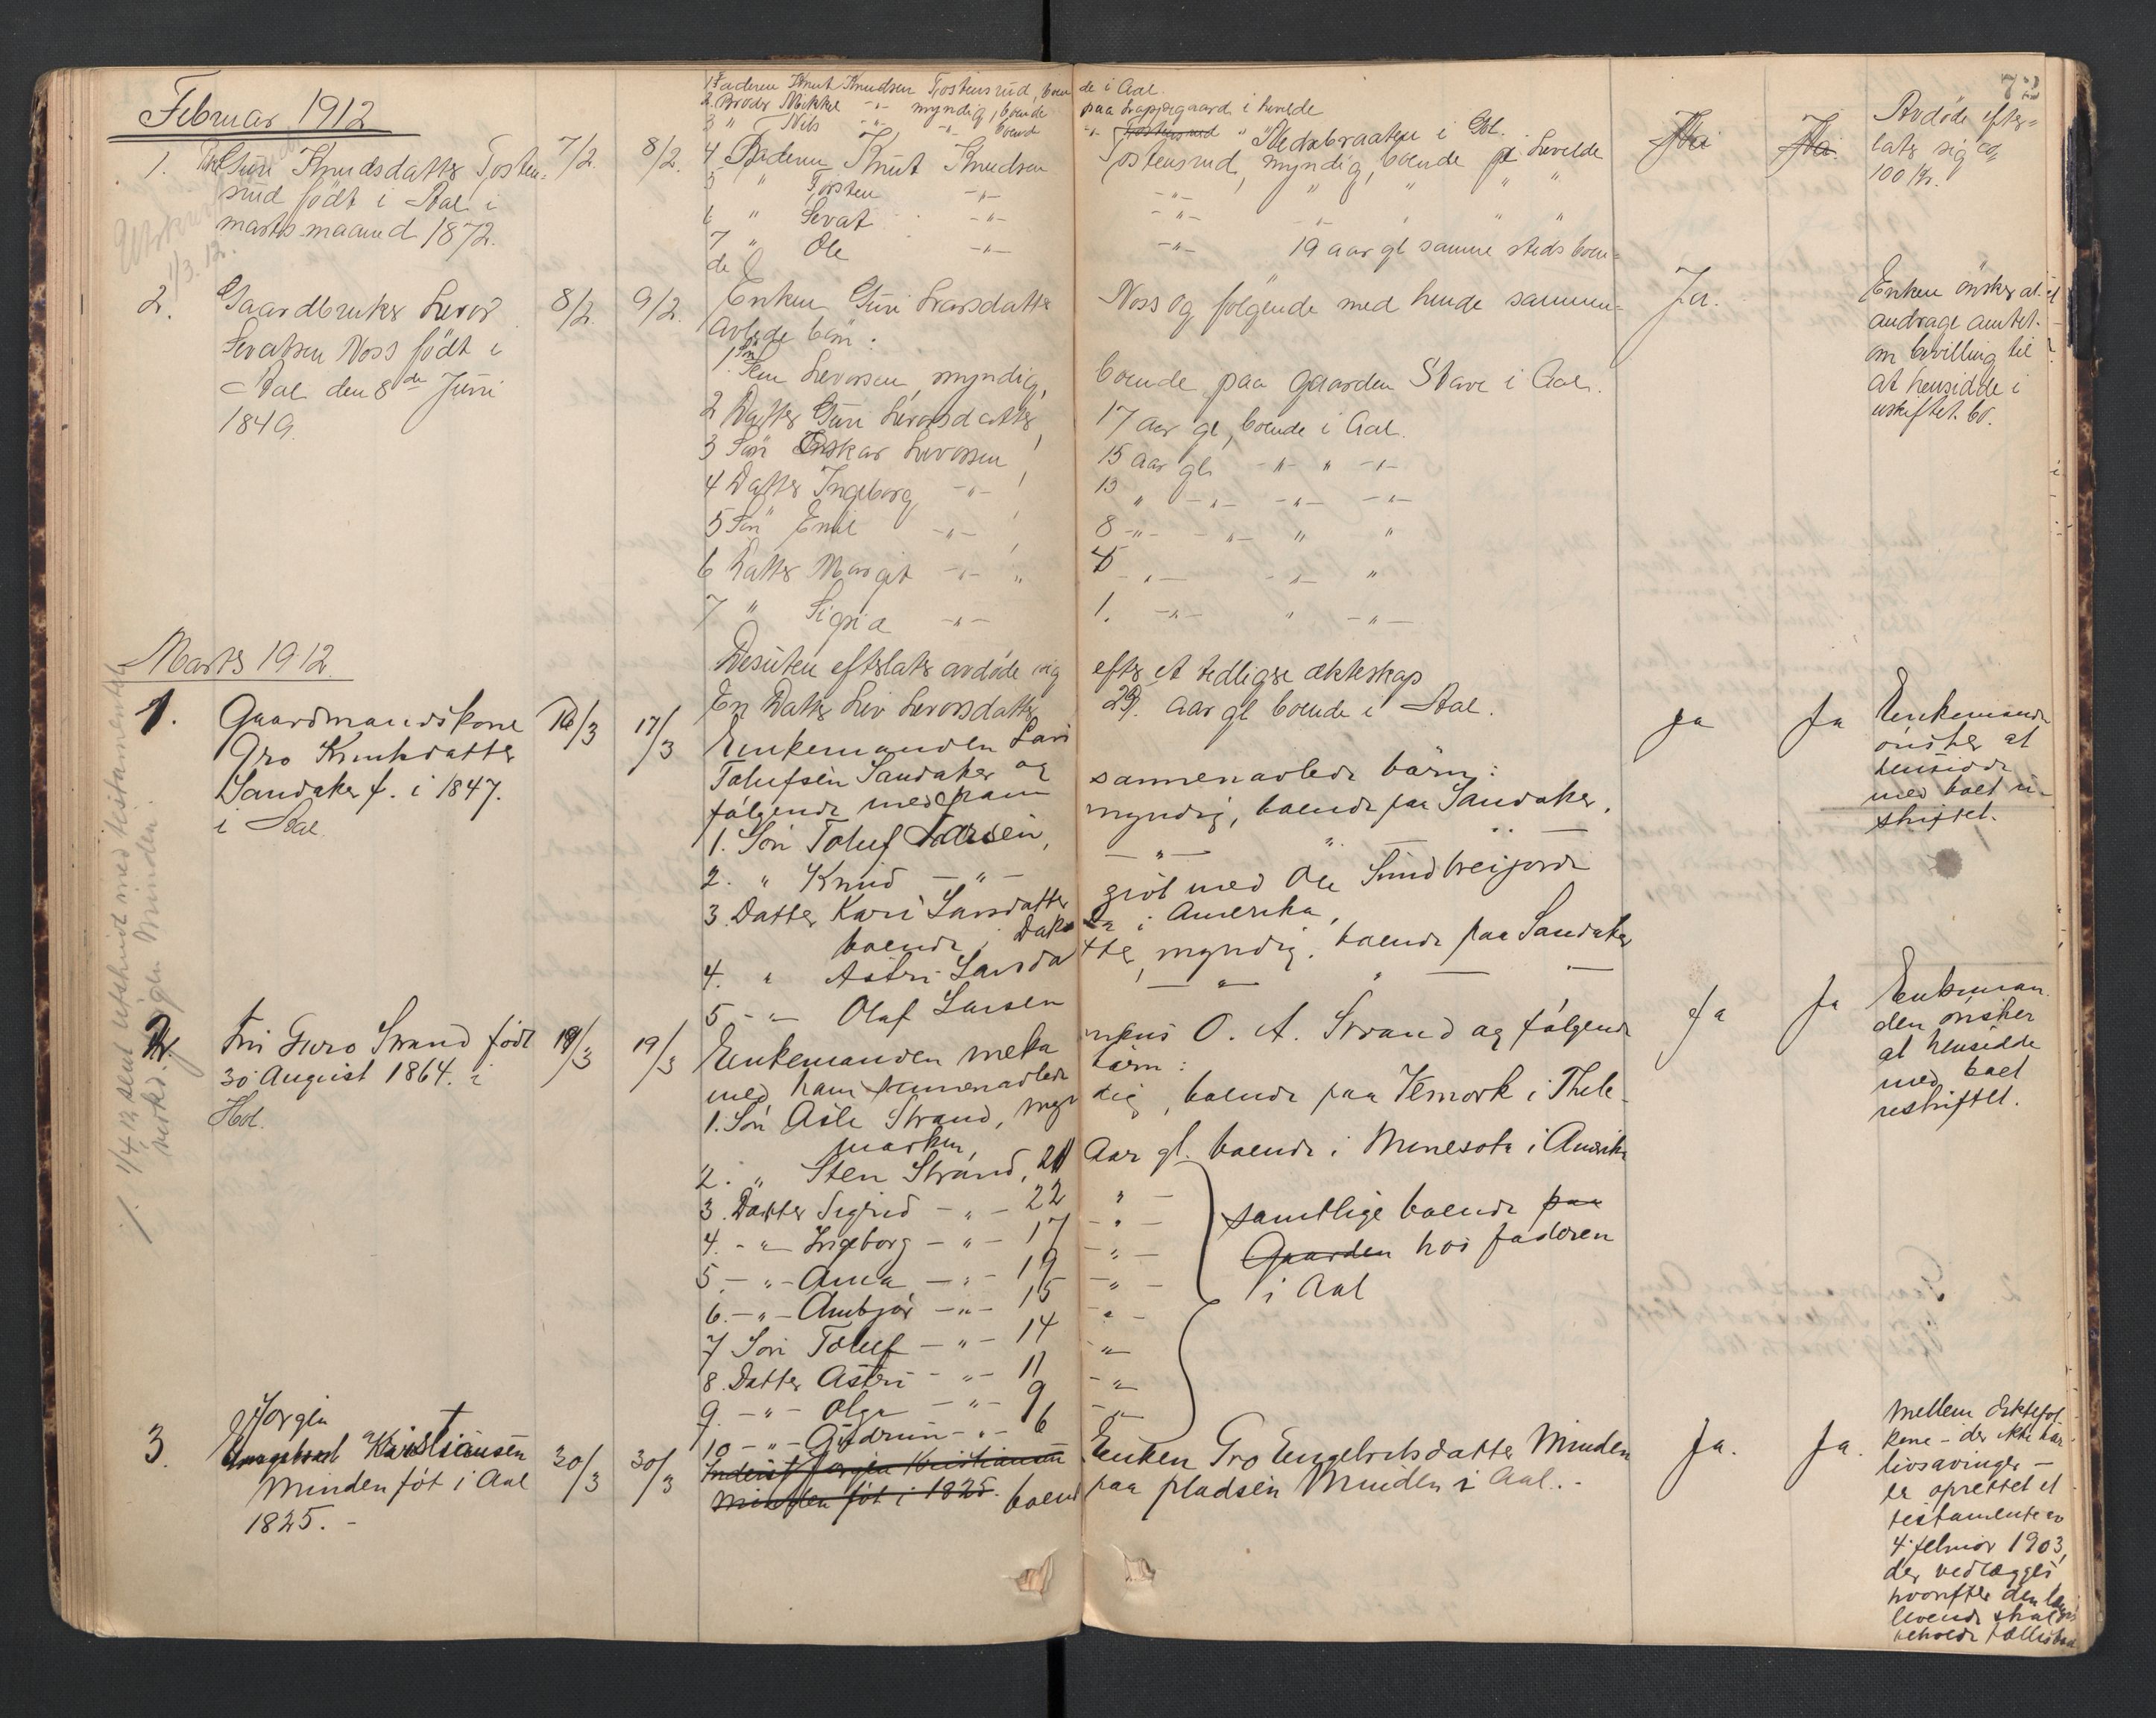 72
Februar 1912
1. Guri Knudsdatter Tosten-
rud født i Aal i
marts maaned 1872.
7/2. 8/2.
1 Faderen Knut Knudsen Tostensrud, boende i Aal.
2 Broder Mikkel -"- myndig, boende paa i Levelde
3 " Nils -"- -"- boende -"- Tostensrud " i Gol.
4 Broderen Knut Knudsen Tostensrud, myndig, boende i Levelde
5 " Torsten -"- -"- " " " "
6 " Sevat -"- -"- " " " "
7 " Ole -"- -"- 19 aar gl samme steds boen-
de
Nei Nei
Avdøde efter-
later sig ca
100 kr.
1/3. 12.
2. Gaardbruker Levor
Sevatsen Noss født i
Aal den 8de Juni
1849.
8/2. 9/2.
Enken Guri Larsdatter Noss og følgende med hende sammen-
avlede børn:
1. Søn Levorsen, myndig, boende paa gaarden Stave i Aal.
2 Datter Guri Levorsdatter, 17 aar gl, boende i Aal.
3 Søn Oskar Levorsen, 15 aar gl. -"- " -"-
4 Datter Ingeborg -"- , 13 " -"- -"- -"-
5 Søn Emil -"- , 8 -"- -"- " "
6 Datter Margit -"- " 4 -"- -"- "
7 " Sigrid -"- 1. -"- " -"-
Desuten efterlater avdøde sig efter et tidligere ækteskap
En Datter Liv Levorsdatter 29. aar gl boende i Aal.
Ja.
Enken ønsker at
andrage amtet
om bevilling til
at hensidde i
uskiftet bo.
Marts 1912.
1. Gaardmandskone
Gro Knutsdatter
Sandaker f. i 1847.
i Aal.
16/3 17/3
Enkemanden Lars
Tolufsen Sandaker og
følgende med ham sammenavlede børn:
1. Søn Toluf Larsen, myndig, boende paa Sandaker.
2. " Knud -"- -"- " -
3. Datter Kari Larsdatter givt med Ole Sundbreijorde
boende i Dakota i Amerika,
4. " Astri Larsdatter, myndig. boende paa Sandaker
5 -"- Olaf Larsen, -"- " -
Ja Ja
Enkemanden
ønsker at
hensidde
med boet u-
skiftet.
2. Fru Guro Strand født
30 August 1864. i
Hol.
18/3 19/3
Enkemanden mekanikus O. A. Strand og følgende
med ham sammenavlede børn:
1. Søn Asle Strand, myndig, boende paa Vemork i Thele-
marken,
2. " Sten Strand, 21 Aar gl. boende i Minesota i Amerika
3. Datter Sigrid -"- 22 " -
4. -"- Ingeborg -"- 17 -"-
5 -"- Anna -"- 19 -"-
6. -"- Ambjør -"- 15 -"-
7 Søn Toluf -"- 14 -"-
8. Datter Astri -"- 11 -"-
9. -"- Olga -"- 9 -"-
10 -"- Gudrun -"- 6
samtlige boende paa
Gaarden hos faderen
i Aal
Ja Ja
Enkeman
den ønsker
at hensidde
med boet
uskiftet.
1/4 12 sent utskrift med testamentets
1/.
3. Jørgen
Kristiansen
Minden føt i Aal
1825. -
30/3 30/3
Inderst Jørgen Kristiansen
Minden føt i 1825.
Enken Gro Engebretsdatter Minden
boende paa pladsen Minden i Aal. -
Ja. Ja.
Mellem Ektefol-
kene - der ikke har
livsavinger -
er oprettet et
testamente av
4. februar 1903,
der vedlægges
hvorefter den længst
levende skal
beholde fællesboet